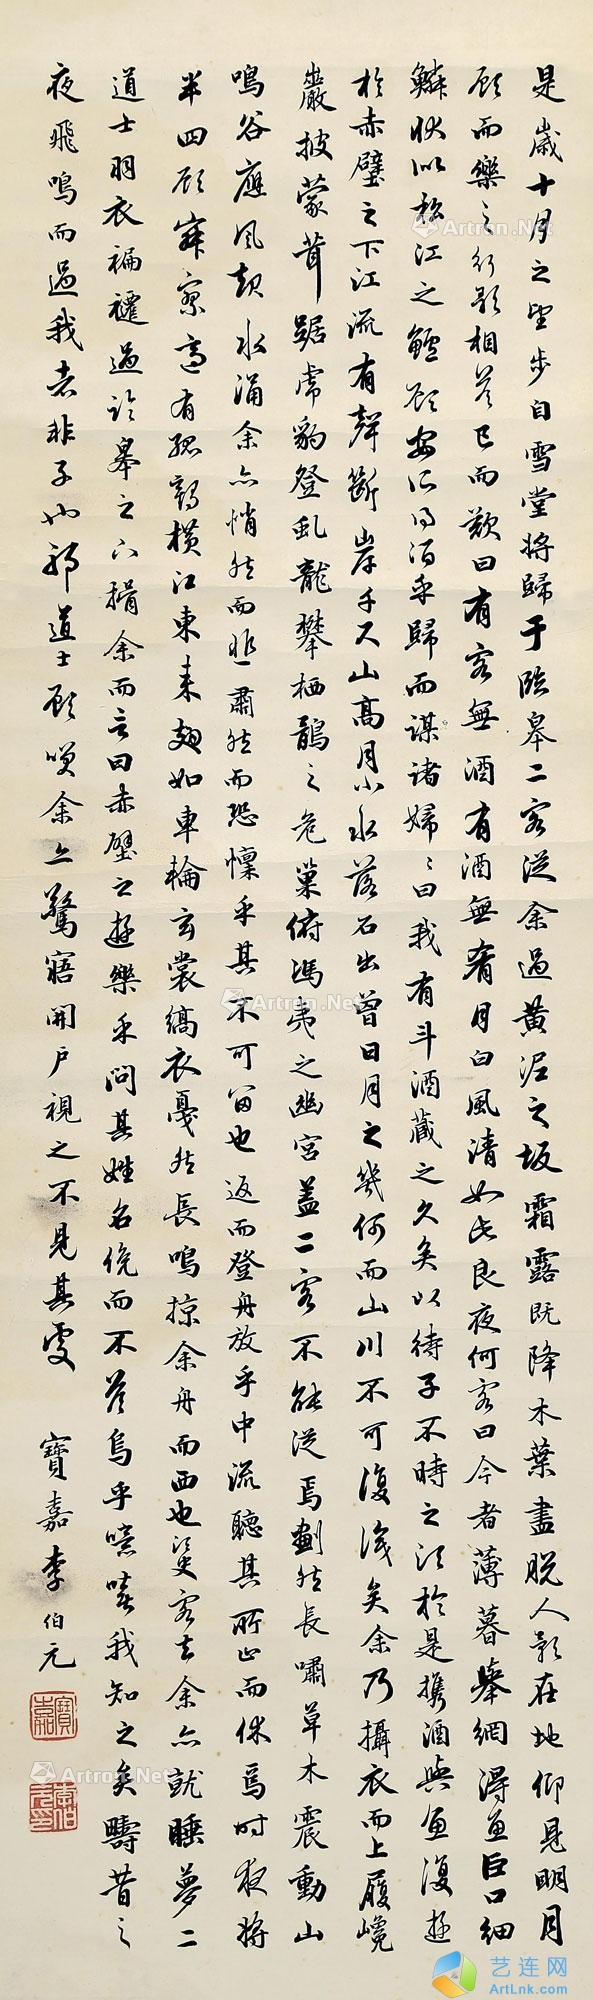 是歲十月之望步自雪堂將歸于臨皋二客從余過黃泥之坂霜露既降木葉盡脫人影在地仰見明月
顧而樂之行歌相答已而歎曰有客無酒有酒無肴月白風清如此良夜何客曰今者薄暮舉網得魚巨口細
鱗狀似松江之鱸顧安所得酒乎歸而謀諸婦〻曰我有斗酒藏之久矣以待子不時之須於是攜酒與魚復遊
於赤壁之下江流有聲斷岸千尺山高月小水落石出曾日月之幾何而山川不可復識矣余乃攝衣而上履巉
巖披蒙茸踞虎豹登虬龍攀栖鶻之危巢俯馮夷之幽宮蓋二客不能從焉劃然長嘯草木震動山
鳴谷應風起水涌余亦悄然而悲肅然而恐懍乎其不可留也返而登舟放乎中流聽其所止而休焉時夜將
半四顧寂寥適有孤鶴橫江東來翅如車輪玄裳縞衣戛然長鳴掠余舟而西也須臾客去余亦就睡夢二
道士羽衣蹁躚過臨皋之下揖余而言曰赤壁之遊樂乎問其姓名俛而不答烏乎噫嘻我知之矣疇昔之
夜飛鳴而過我者非子也耶道士顧笑余亦驚寤開戶視之不見其處
寶嘉李伯元
寶嘉
李伯元印
Artron.Net
Artron.Net
Artron.Net
Artron.Net
Artron.Net
Artron.Net
艺连网
ArtLnk.com